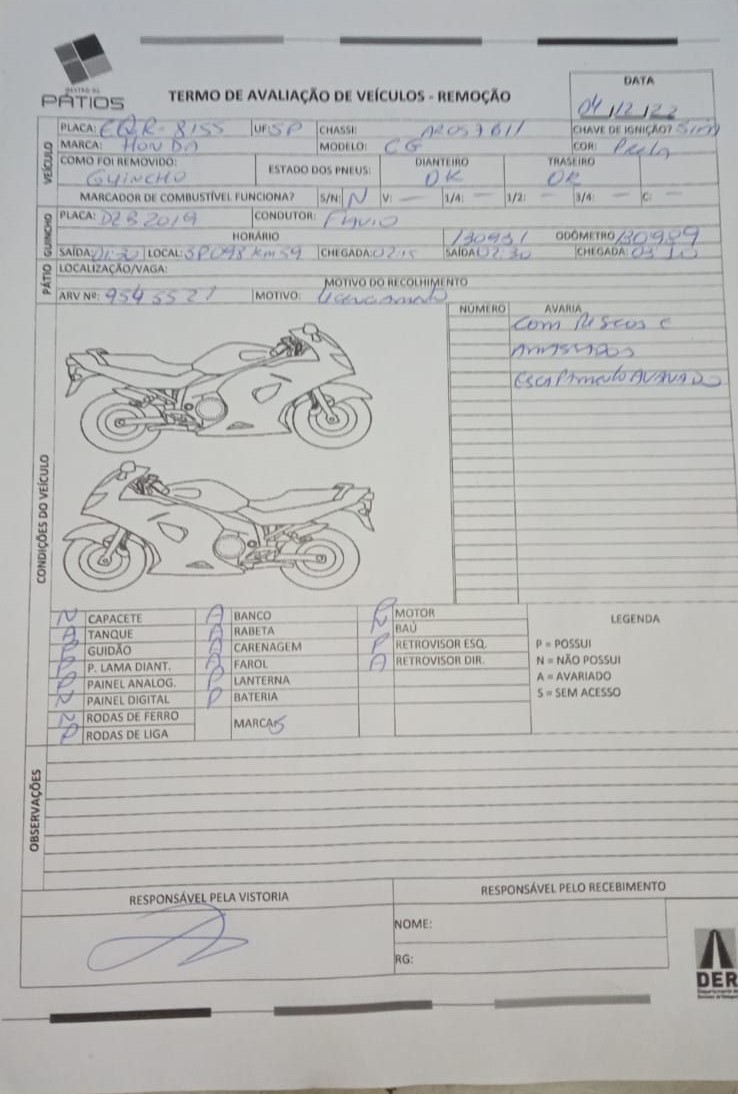 GESTÃO DE
PÁTIOS
TERMO DE AVALIAÇÃO DE VEÍCULOS - REMOÇÃO
DATA
04/12/22
VEÍCULO
PLACA: EQR-8155 UF: SP CHASSI: CHAVE DE IGNIÇÃO? Sim
MARCA: HONDA MODELO: CG COR: Preta
COMO FOI REMOVIDO: GUINCHO ESTADO DOS PNEUS: DIANTEIRO OK TRASEIRO OK
MARCADOR DE COMBUSTÍVEL FUNCIONA? S/N: N V: — 1/4: — 1/2: — 3/4: — C: —
GUINCHO
PLACA: DZB 2019 CONDUTOR: FLAVIO
HORÁRIO 130931 ODÔMETRO 130989
SAÍDA: 01:30 LOCAL: SP 098 Km 59 CHEGADA: 02:15 SAÍDA: 02:30 CHEGADA: 03:10
PÁTIO
LOCALIZAÇÃO/VAGA:
MOTIVO DO RECOLHIMENTO
ARV Nº: 9545521 MOTIVO: Licenciamento
CONDIÇÕES DO VEÍCULO
NÚMERO AVARIA
Com Riscos e
Amassados
Escapamento
N CAPACETE A BANCO P MOTOR
A TANQUE A RABETA N BAÚ
P GUIDÃO A CARENAGEM P RETROVISOR ESQ.
P P. LAMA DIANT. A FAROL A RETROVISOR DIR.
P PAINEL ANALOG. P LANTERNA
N PAINEL DIGITAL P BATERIA
N RODAS DE FERRO
P RODAS DE LIGA
MARCA: S
LEGENDA
P = POSSUI
N = NÃO POSSUI
A = AVARIADO
S = SEM ACESSO
OBSERVAÇÕES
RESPONSÁVEL PELA VISTORIA
RESPONSÁVEL PELO RECEBIMENTO
NOME:
RG:
DER